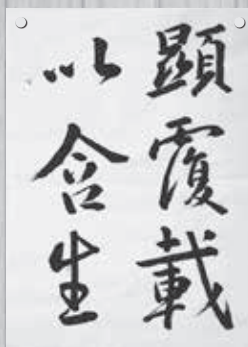 顯覆載
以含生